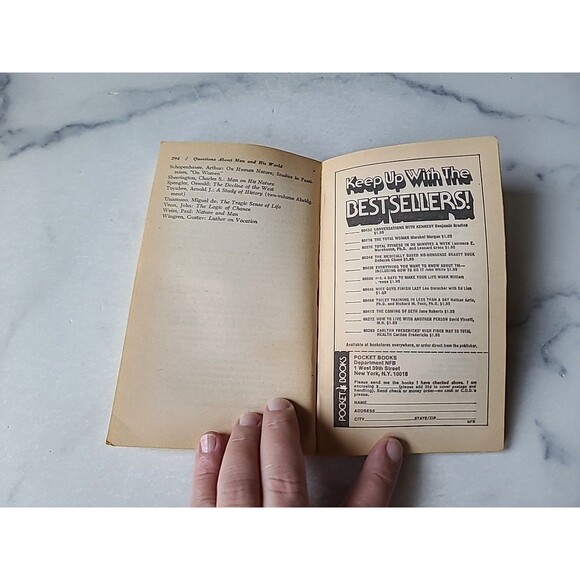 294 / Questions About Man and His World
Schopenhauer, Arthur: On Human Nature, Studies in Pessi-
mism, "On Women"
Sherrington, Charles S.: Man on His Nature
Spengler, Oswald: The Decline of the West
Toynbee, Arnold J.: A Study of History (two-volume Abridg-
ment)
Unamuno, Miguel de: The Tragic Sense of Life
Venn, John: The Logic of Chance
Weiss, Paul: Nature and Man
Wingren, Gustaf: Luther on Vocation
Keep Up With The
BESTSELLERS!
CONVERSATIONS WITH KENNEDY Benjamin Bradlee
$1.95
THE TOTAL WOMAN Marabel Morgan $1.95
TOTAL FITNESS IN 30 MINUTES A WEEK Laurence E.
Morehouse, Ph.D. and Leonard Gross $1.95
THE MEDICALLY BASED NO-NONSENSE BEAUTY BOOK
Deborah Chase $1.95
EVERYTHING YOU WANT TO KNOW ABOUT TM—
INCLUDING HOW TO DO IT John White $1.95
4 DAYS TO MAKE YOUR LIFE WORK William
NICE GUYS FINISH LAST Leo Durocher with Ed Linn
TOILET TRAINING IN LESS THAN A DAY Nathan Azrin,
Ph.D. and Richard M. Foxx, Ph.D. $1.95
THE COMING OF SETH Jane Roberts $1.95
HOW TO LIVE WITH ANOTHER PERSON David Viscott,
M.D. $1.95
CARLTON FREDERICKS' HIGH FIBER WAY TO TOTAL
HEALTH Carlton Fredericks $1.95
Available at bookstores everywhere, or order direct from the publisher.
POCKET BOOKS
POCKET BOOKS
Department NFB
1 West 39th Street
New York, N.Y. 10018
Please send me the books I have checked above. I am
enclosing $ (please add 35¢ to cover postage and
handling). Send check or money order—no cash or C.O.D.'s
please.
NAME
ADDRESS
CITY STATE/ZIP
NFB